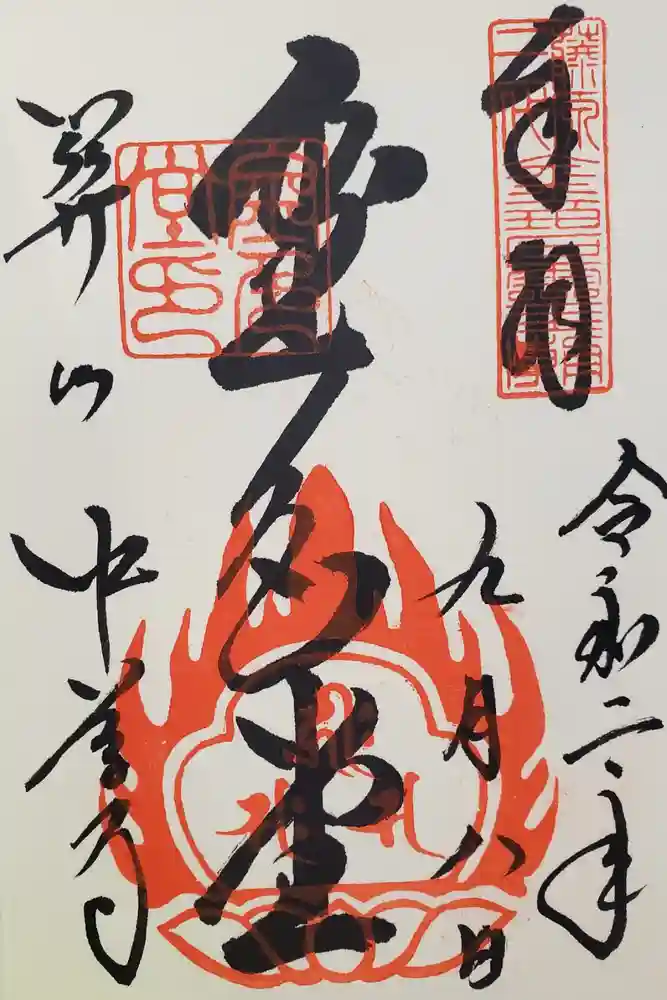 奉拝
令和二年
九月八日
金色堂
金色
堂印
関山 中尊寺